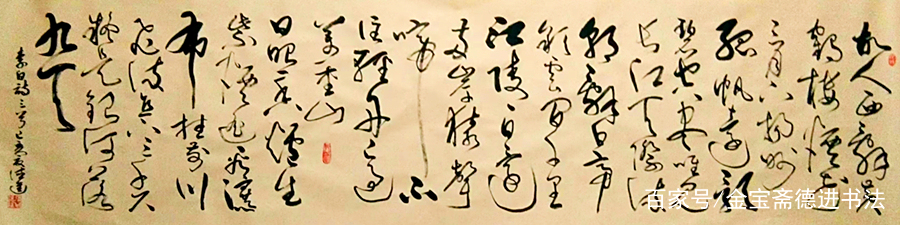 故人西辞黄
鹤楼烟花
三月下扬州
孤帆远影
碧空尽唯见
长江天际流
朝辞白帝
彩云间千里
江陵一日还
两岸猿声
啼不
住轻舟已过
万重山
日照香炉生
紫烟遥看瀑
布挂前川
飞流直下三千尺
疑是银河落
九天
李白诗三首己亥德进
百家号/金宝斋德进书法